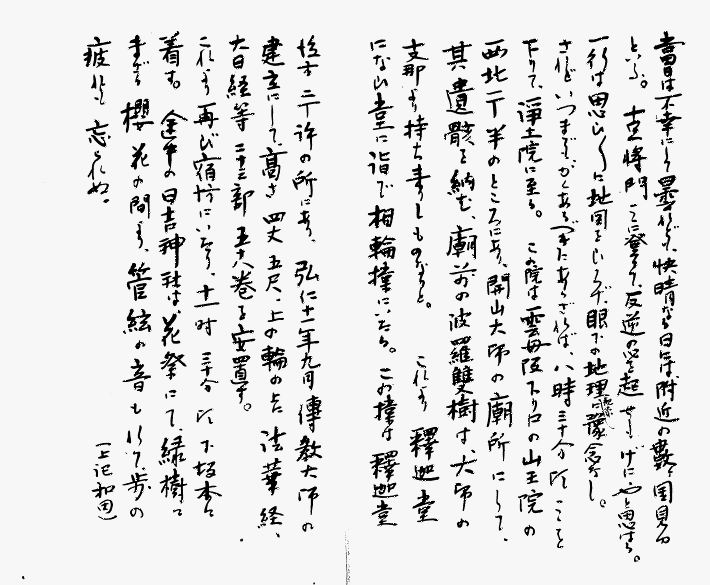 当日は不幸にして曇りなれど、快晴なる日には附近の数ヶ国見ゆ
といふ。古、将門ここに登りて反逆の心を起せしもげにやと思はる。
一行は思ひ〱に地図をひろげ、眼下の地理に余念なし。
されどいつまでもかくあるべきにあらざれば、八時三十分頃ここを
下りて、浄土院に至る。この院は雲母阪下り口の山王院の
西北二丁半のところにあり、開山大師の廟所にして、
其遺骸を納む、廟前の波羅雙樹は大師の
支那より持ち来りしものなりと。これより釋迦堂
になひ堂に詣で相輪橖にいたる。この橖は釋迦堂
二丁許の所にあり、弘仁十一年九月傳教大師の
建立にして、高さ四丈五尺、上の輪の上に法華経、
大日経等二十三部五十八巻を安置す。
これより再び宿坊にいたり、十一時三十分頃下坂本に
着す。途中の日吉神社は花祭にて、緑樹に
まがう櫻花の間より、管絃の音もれて、歩の
疲れも忘られぬ。
(上記和田)